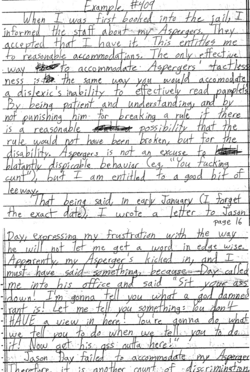 Example #404
When I was first booked into the jail, I
informed the staff about my Aspergers. They
accepted that I have it. This entitles me
to reasonable accommodations. The only effective
way to accommodate Aspergers tactless-
ness is the same way you would accomodate
a dislexic's inability to effectively read pamplets:
By being patient and understanding, and by
not punishing him for breaking a rule if there
is a reasonable possibility that the
rule would not have been broken, but for the
disability. Aspergers is not an excuse for
blatantly dispicable behavior (e.g. "You fucking
cunt"), but I am entitled to a good bit of
leeway.
That being said, in early January (I forget
the exact date), I wrote a letter to Jason
page 16
Day, expressing my frustration with the way
he will not let me get a word in edge wise.
Apparently, my Asperger's kicked in, and I
must have said something, because Day called
me into his office and said "Sit your ass
down. I'm gonna tell you what a god damned
rant is! Let me tell you something: You don't
HAVE a view in here! You're gonna do what
we tell you to do when we tell you to do
it! Now get his ass outta here!"
Jason Day failed to accommodate my Asperger
Therefore, it is another count of discrimination